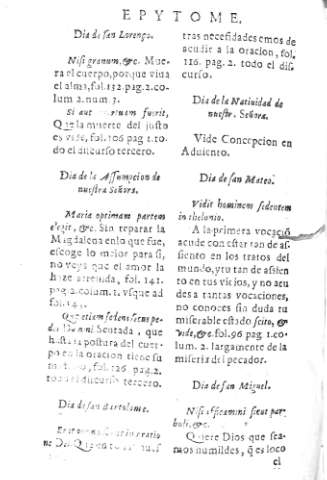 EPYTOME.
Dia de san Lorenço.
Nisi granum, &c. Mue-
ra el cuerpo, porque viua
el alma, fol. 132. pag. 2. co-
lum 2. num. 7.
Si aut mortuum fuerit,
Que la muerte del justo
es vida, fol. 106 pag 1. to-
do el discurso tercero.
Dia de la Assumpcion de
nuestra Señora.
Maria optimam partem
elegit, &c. Sin reparar la
Magdalena en lo que fue,
escoge lo mejor para si,
no veys que el amor la
haze atreuida, fol. 141.
pag. 2. colum. 1. vsque ad
fol.
Sentada, que
hasta la postura del cuer-
po en la oracion tiene su
fol. 126. pag. 2.
todo el discurso tercero.
Dia de san Bartolome.
in oratio
ne Dei,
tras necesidades emos de
acudir a la oracion, fol.
116. pag. 2. todo el dis-
curso.
Dia de la Natiuidad de
nuestr. Señora.
Vide Concepcion en
Aduiento.
Dia de san Mateo.
Vidit hominem sedentem
in thelonio.
A la primera vocació
acude con estar tan de as-
siento en los tratos del
mundo, y tu tan de assien-
to en tus vicios, y no acu-
des a tantas vocaciones,
no conoces sin duda tu
miserable estado scito, &
vide, &c. fol. 96 pag 1. co-
lum. 2. largamente de la
miseria del pecador.
Dia de san Miguel.
Nisi efficiamini sicut par-
buli, &c.
Quiere Dios que sea-
mos humildes, q̃ es loco
el